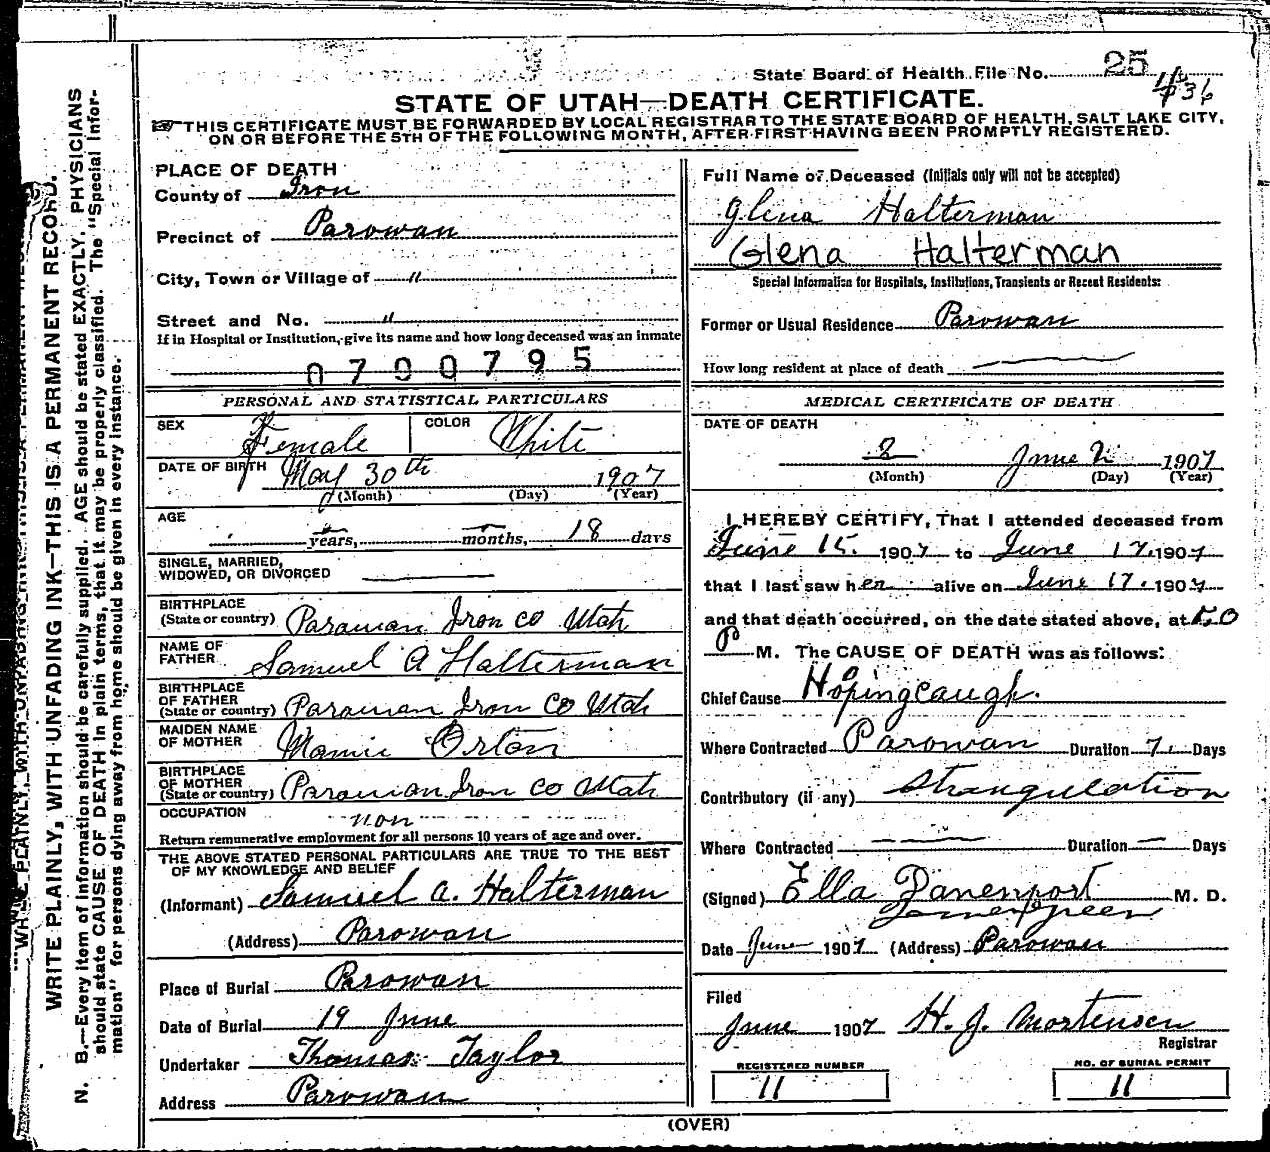 State Board of Health File No. 25
436
STATE OF UTAH—DEATH CERTIFICATE.
THIS CERTIFICATE MUST BE FORWARDED BY LOCAL REGISTRAR TO THE STATE BOARD OF HEALTH, SALT LAKE CITY,
ON OR BEFORE THE 5TH OF THE FOLLOWING MONTH, AFTER FIRST HAVING BEEN PROMPTLY REGISTERED.
WRITE PLAINLY, WITH UNFADING INK—THIS IS A PERMANENT RECORD.
N. B.—Every item of information should be carefully supplied. AGE should be stated EXACTLY. PHYSICIANS
should state CAUSE OF DEATH in plain terms, that it may be properly classified. The "Special Infor-
mation" for persons dying away from home should be given in every instance.
PLACE OF DEATH
County of Iron
Precinct of Parowan
City, Town or Village of "
Street and No. "
If in Hospital or Institution, give its name and how long deceased was an inmate
0700795
PERSONAL AND STATISTICAL PARTICULARS
SEX Female COLOR White
DATE OF BIRTH May 30th 1907
(Month) (Day) (Year)
AGE
years, months, 18 days
SINGLE, MARRIED,
WIDOWED, OR DIVORCED
BIRTHPLACE
(State or country) Parowan Iron Co Utah
NAME OF
FATHER Samuel A Halterman
BIRTHPLACE
OF FATHER
(State or country) Parowan Iron Co Utah
MAIDEN NAME
OF MOTHER Mamie Orton
BIRTHPLACE
OF MOTHER
(State or country) Parowan Iron Co Utah
OCCUPATION non
Return remunerative employment for all persons 10 years of age and over.
THE ABOVE STATED PERSONAL PARTICULARS ARE TRUE TO THE BEST
OF MY KNOWLEDGE AND BELIEF
(Informant) Samuel A. Halterman
(Address) Parowan
Place of Burial Parowan
Date of Burial 19 June
Undertaker Thomas Taylor
Address Parowan
Full Name of Deceased (Initials only will not be accepted)
Glena Halterman
Glena Halterman
Special Information for Hospitals, Institutions, Transients or Recent Residents:
Former or Usual Residence Parowan
How long resident at place of death
MEDICAL CERTIFICATE OF DEATH
DATE OF DEATH
2 June 2 1907
(Month) (Day) (Year)
I HEREBY CERTIFY, That I attended deceased from
June 15. 1907 to June 17. 1907
that I last saw her alive on June 17. 1907
and that death occurred, on the date stated above, at 5,0
P M. The CAUSE OF DEATH was as follows:
Chief Cause Hopingcaugh.
Where Contracted Parowan Duration 7. Days
Contributory (if any) Strangulation
Where Contracted Duration Days
(Signed) Ella Davenport M. D.
Date June 1907 (Address) Parowan
Filed
June 1907 H. J. Mortensen
Registrar
REGISTERED NUMBER
11
NO. OF BURIAL PERMIT
11
(OVER)